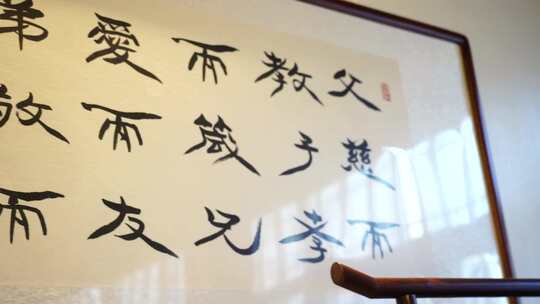 父慈而
教子孝
而箴兄
愛而友
弟敬而